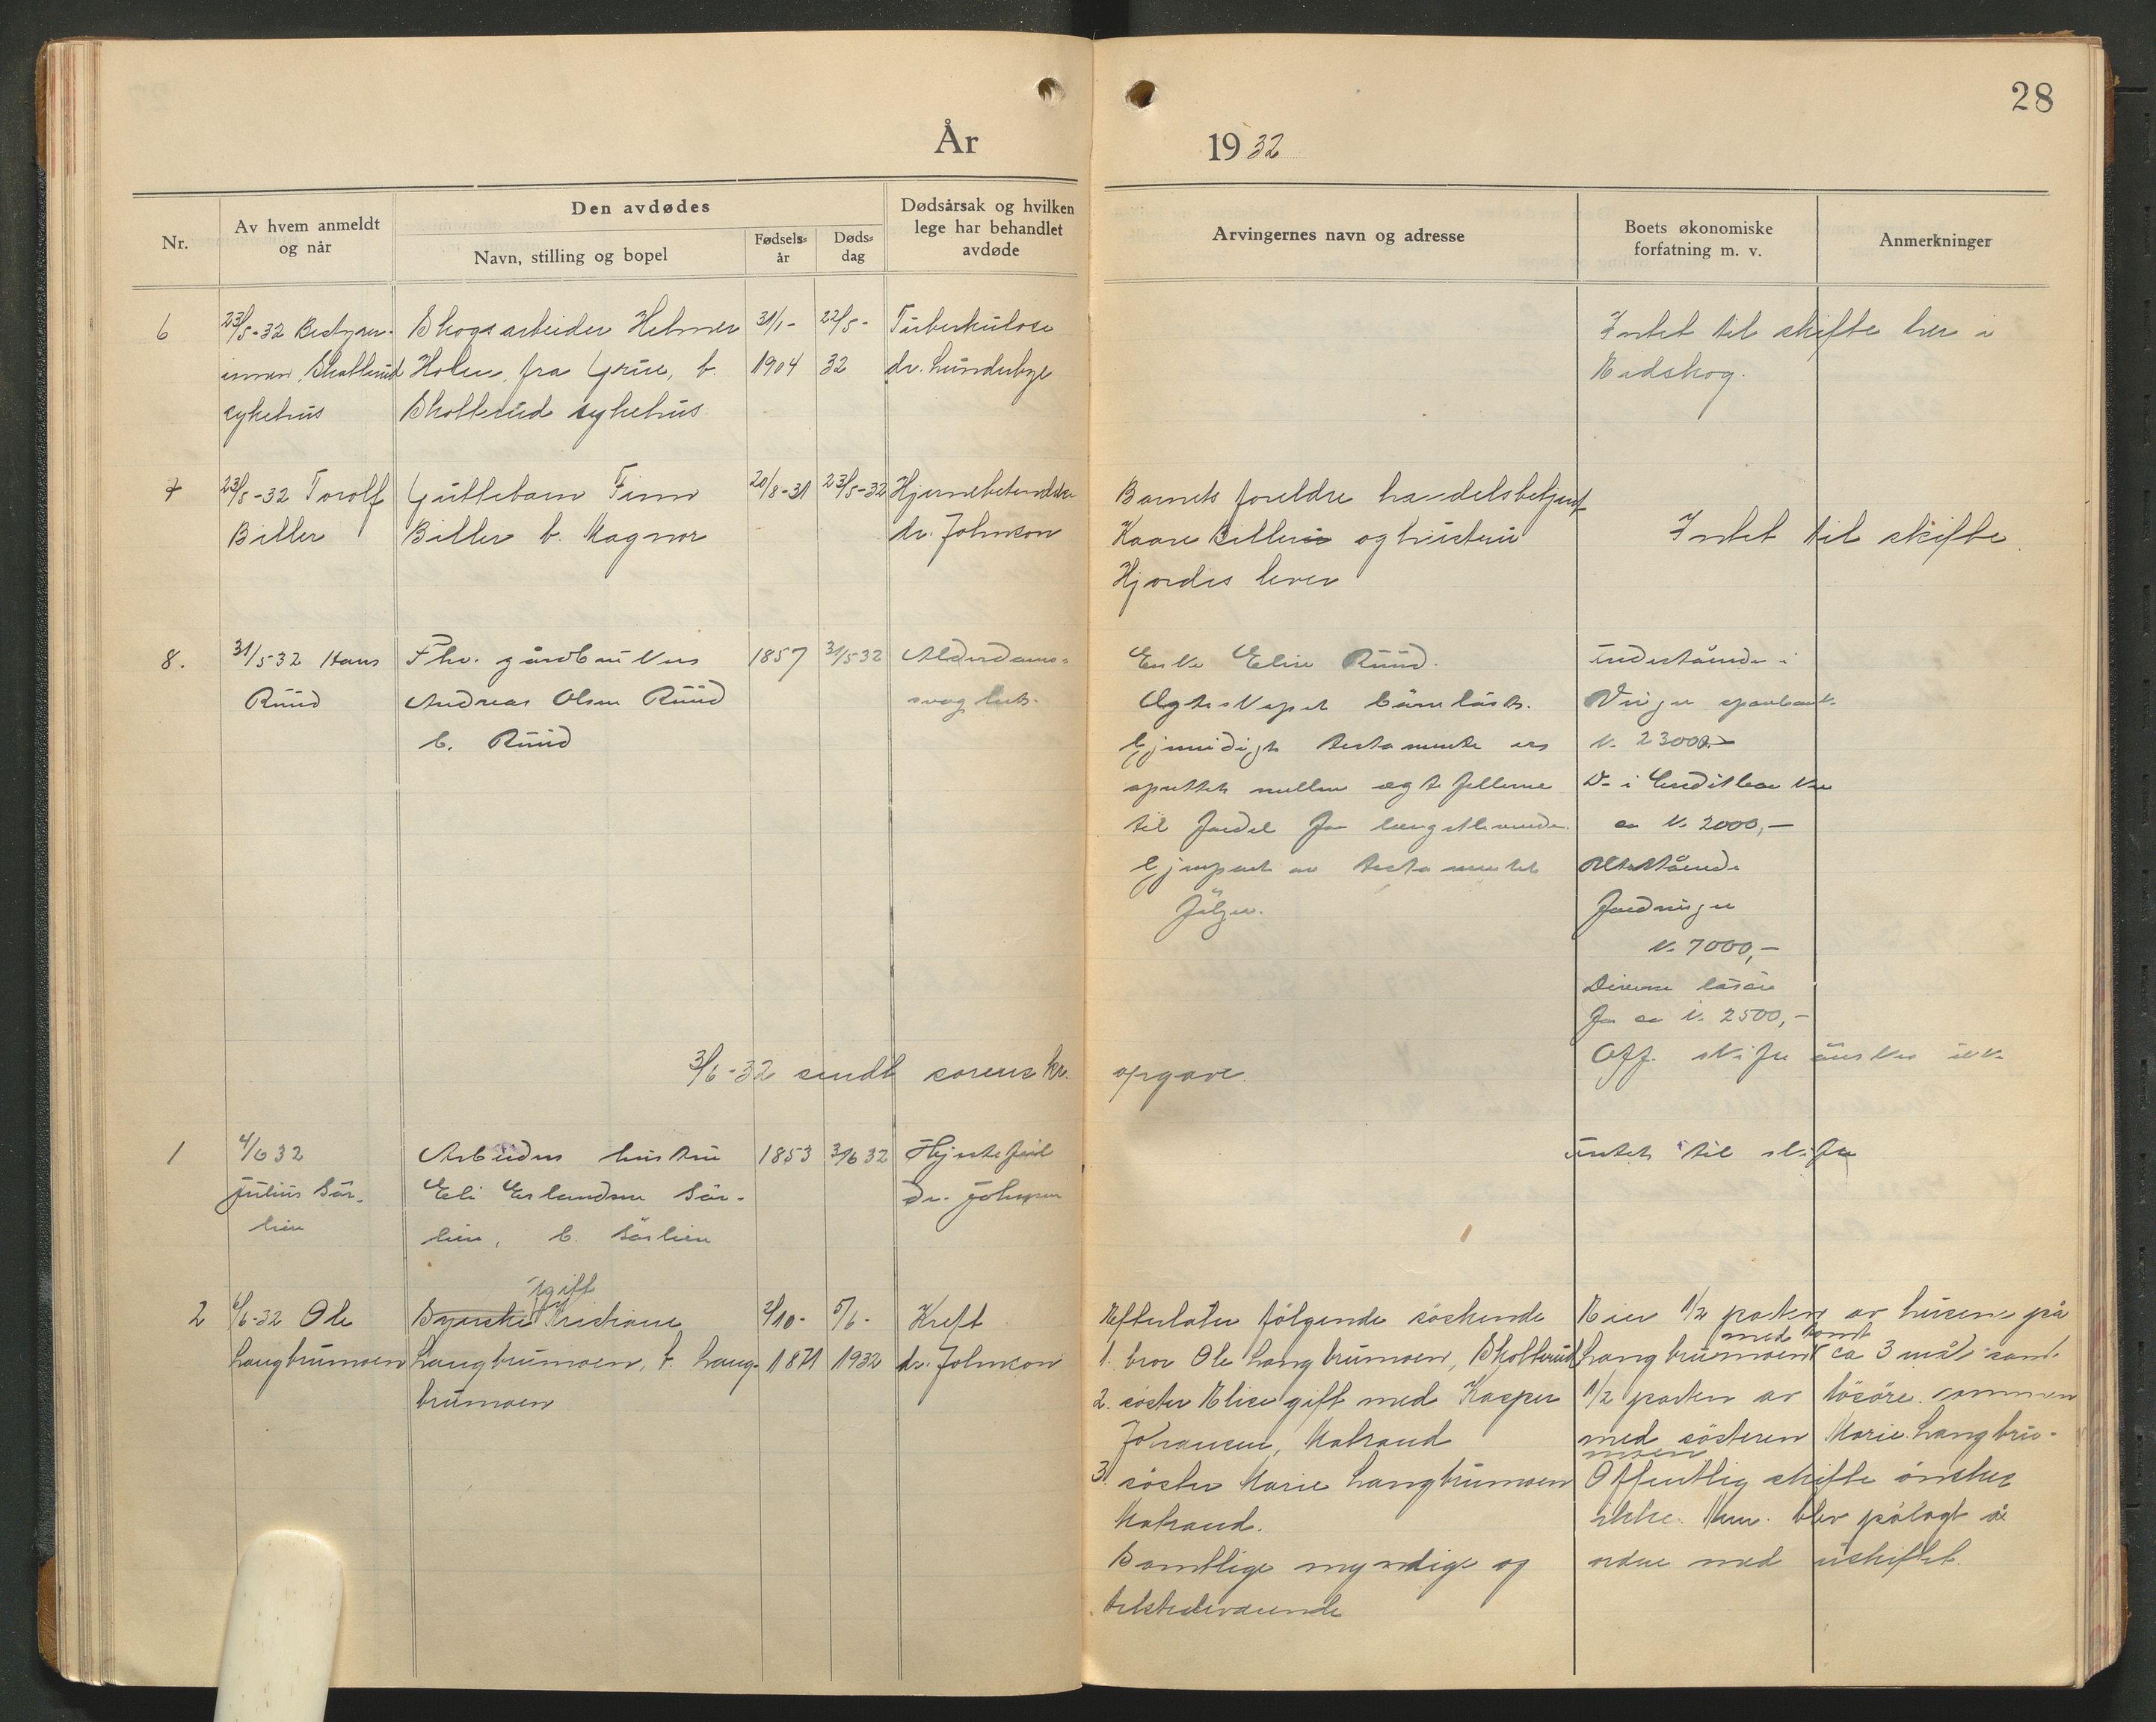 28
År 1932
Nr.
Av hvem anmeldt
og når
Den avdødes
Navn, stilling og bopel
Fødsels-
år
Døds-
dag
Dødsårsak og hvilken
lege har behandlet
avdøde
Arvingernes navn og adresse
Boets økonomiske
forfatning m. v.
Anmerkninger
6
23/5-32 Bestyrer-
innen, Skotterud
sykehus
Skogsarbeider Helmer
Holen fra Grue, b.
Skotterud sykehus
31/1-
1904
22/5-
32
Tuberkulose
dr. Lunderbye
Intet til skifte her i
Eidskog.
7
23/5-32 Torolf
Biller
Guttebarn Finn
Biller b. Magnor
20/8-31
23/5-32
Hjernebetendelse
dr. Johnson
Barnets foreldre handelsbetjent
Kaare Biller og hustru
Hjørdis lever
Intet til skifte
8.
31/5 32 Hans
Ruud
Fhv. gårdbruker
Andreas Olsen Ruud
b. Ruud
1857
31/5 32
Alderdoms-
svaghet.
Enke Elise Ruud.
Ægteskapet barnløst.
Gjensidigt testamente er
oprettet mellem ægtefellerne
til fordel for længstlevende.
Gjenpart av testamentet
følger.
Indestående i
Vinger sparebank
k. 23000.-
Do i Creditbanken
ca k. 2000,-
Utestående
fordringer
k. 7000,-
Diverse løsøre
for ca k. 2500,-
Off. skifte ønskes ikke
3/6-32 sendt sorenskr. opgave.
1
4/6 32
Julius Sør-
lien
Arbeiders hustru
Eli Erlandsen Sør-
lien, b. Sørlien
1853
3/6 32
Hjertefeil
Dr. Johnson
Intet til skifte
2
6/6-32 Ole
Langbrumoen
Ugift
Syerske Kristiane
Langbrumoen, b. Lang-
brumoen
2/10-
1871
5/6-
1932
Kreft
dr. Johnson
Efterlater følgende søskende
1. bror Ole Langbrumoen, Skotterud
2. søster Elise gift med Kasper
Johansen, Matrand
3. søster Marie Langbrumoen
Matrand.
Samtlige myndige og
tilstedeværende
Eier 1/2 parten av husene på
med tomt
Langbrumoen ca 3 mål samt
1/2 parten av løsøre sammen
med søsteren Marie Langbru-
moen
Offentlig skifte ønskes
ikke. Anm. blev pålagt å
ordne med uskiftet.